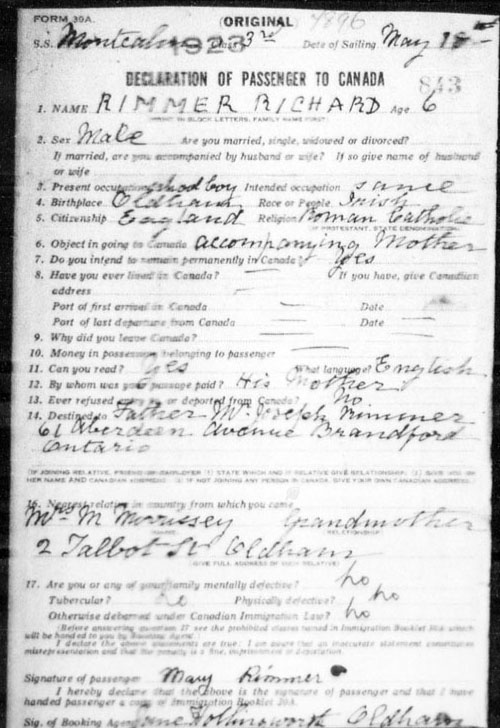 FORM 30A.
(ORIGINAL) 4896
S.S. Montcalm 1923 Class 3rd Date of Sailing May 18
DECLARATION OF PASSENGER TO CANADA 843
1. NAME RIMMER RICHARD Age 6
(PRINT IN BLOCK LETTERS, FAMILY NAME FIRST)
2. Sex Male Are you married, single, widowed or divorced?
If married, are you accompanied by husband or wife? If so give name of husband
or wife
3. Present occupation schoolboy Intended occupation same
4. Birthplace Oldham Race or People Irish
5. Citizenship England Religion Roman Catholic
IF PROTESTANT, STATE DENOMINATION
6. Object in going to Canada accompanying Mother
7. Do you intend to remain permanently in Canada? Yes
8. Have you ever lived in Canada? — If you have, give Canadian
address —
Port of first arrival in Canada — Date —
Port of last departure from Canada — Date —
9. Why did you leave Canada? —
10. Money in possession belonging to passenger —
11. Can you read? Yes What language? English
12. By whom was your passage paid? His Mother
13. Ever refused entry or deported from Canada? No
14. Destined to Father Mr Joseph Rimmer
61 Aberdeen Avenue Brandford
Ontario
(IF JOINING RELATIVE, FRIEND OR EMPLOYER (1) STATE WHICH AND IF RELATIVE GIVE RELATIONSHIP. (2) GIVE
HER NAME AND CANADIAN ADDRESS (3) IF NOT JOINING ANY PERSON IN CANADA, GIVE YOUR OWN CANADIAN ADDRESS.)
16. Nearest relative in country from which you came
Mrs M Morrissey Grandmother
NAME RELATIONSHIP
2 Talbot St Oldham
(GIVE FULL ADDRESS OF SUCH RELATIVE)
17. Are you or any of your family mentally defective? no
Tubercular? no Physically defective? no
Otherwise debarred under Canadian Immigration Law? no
(Before answering question 17 see the prohibited classes named in Immigration Booklet 30A which
will be handed to you by Booking Agent)
I declare the above statements are true: I am aware that an inaccurate statement constitutes
misrepresentation and that the penalty is a fine, imprisonment or deportation.
Signature of passenger Mary Rimmer
I hereby declare that the above is the signature of passenger and that I have
handed passenger a copy of Immigration Booklet 30A.
Sig. of Booking Agent Hollingsworth Oldham